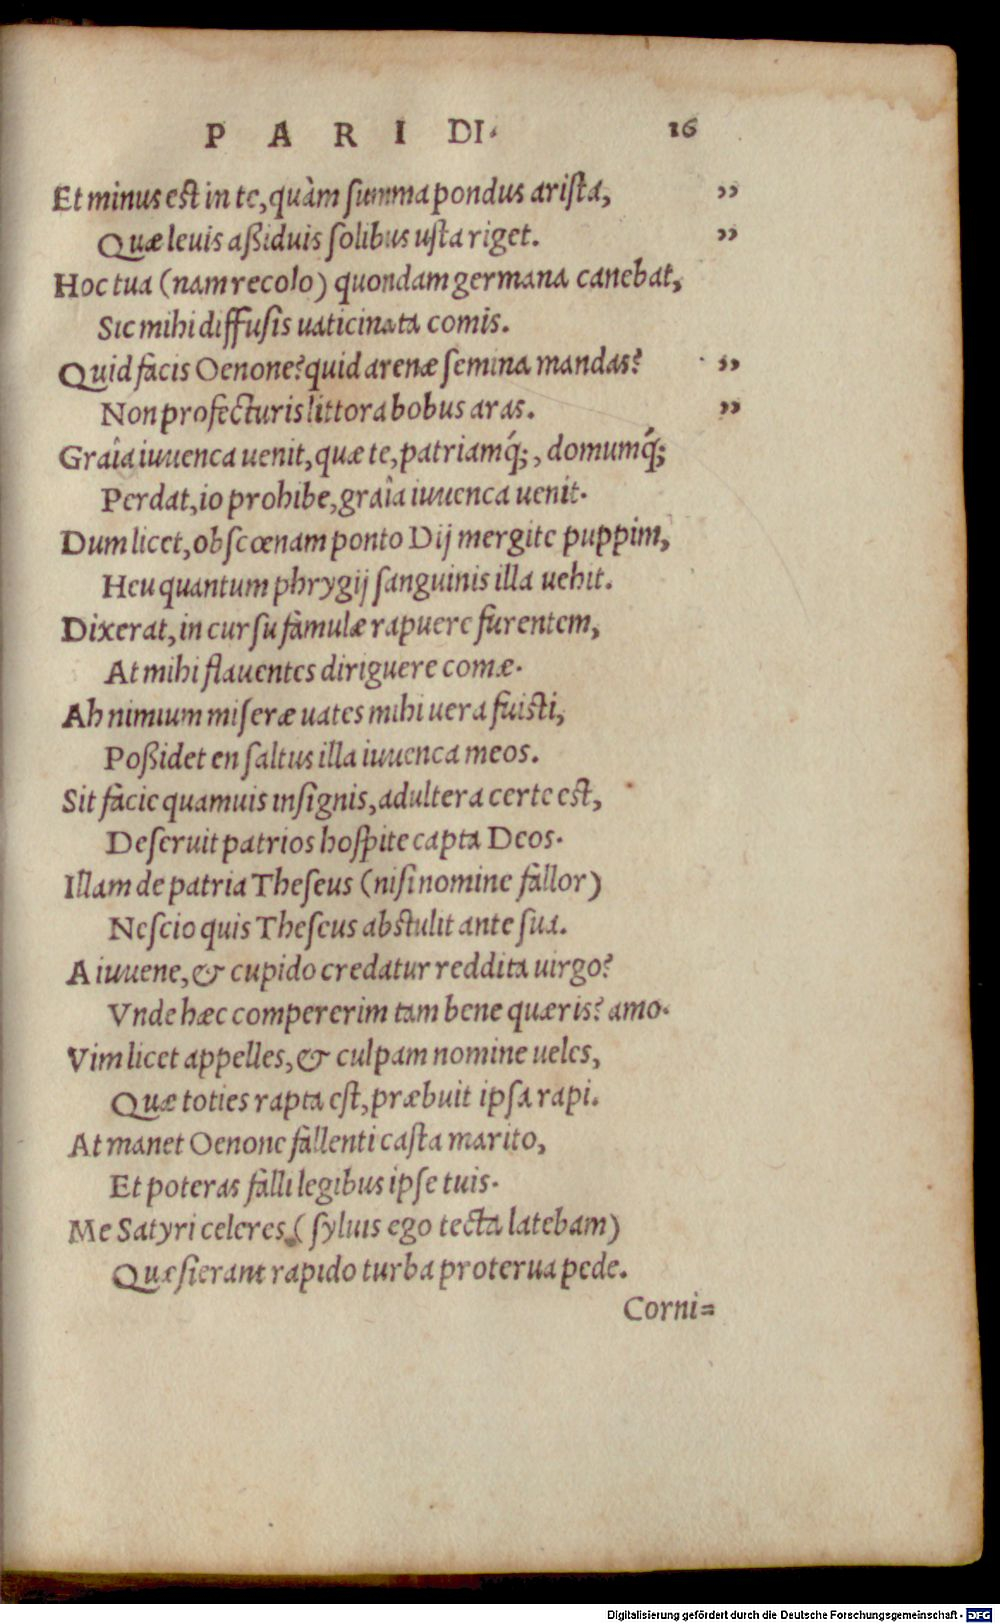 PARIDI. 16
Et minus est in te, quàm summa pondus arista, ”
Quæ leuis aßiduis solibus usta riget. ”
Hoc tua (nam recolo) quondam germana canebat,
Sic mihi diffusis uaticinata comis.
Quid facis Oenone? quid arenæ semina mandas? ”
Non profecturis littora bobus aras. ”
Graîa iuuenca uenit, quæ te, patriamq́;, domumq́;
Perdat, io prohibe, graîa iuuenca uenit.
Dum licet, obscœnam ponto Dij mergite puppim,
Heu quantum phrygij sanguinis illa uehit.
Dixerat, in cursu famulæ rapuere furentem,
At mihi flauentes diriguere comæ.
Ah nimium miseræ uates mihi uera fuisti,
Poßidet en saltus illa iuuenca meos.
Sit facie quamuis insignis, adultera certe est,
Deseruit patrios hospite capta Deos.
Illam de patria Theseus (nisi nomine fallor)
Nescio quis Theseus abstulit ante sua.
A iuuene, & cupido credatur reddita uirgo?
Vnde hæc compererim tam bene quæris? amo.
Vim licet appelles, & culpam nomine ueles,
Quæ toties rapta est, præbuit ipsa rapi.
At manet Oenone fallenti casta marito,
Et poteras falli legibus ipse tuis.
Me Satyri celeres (syluis ego tecta latebam)
Quæsierant rapido turba proterua pede.
Corni=
Digitalisierung gefördert durch die Deutsche Forschungsgemeinschaft - DFG